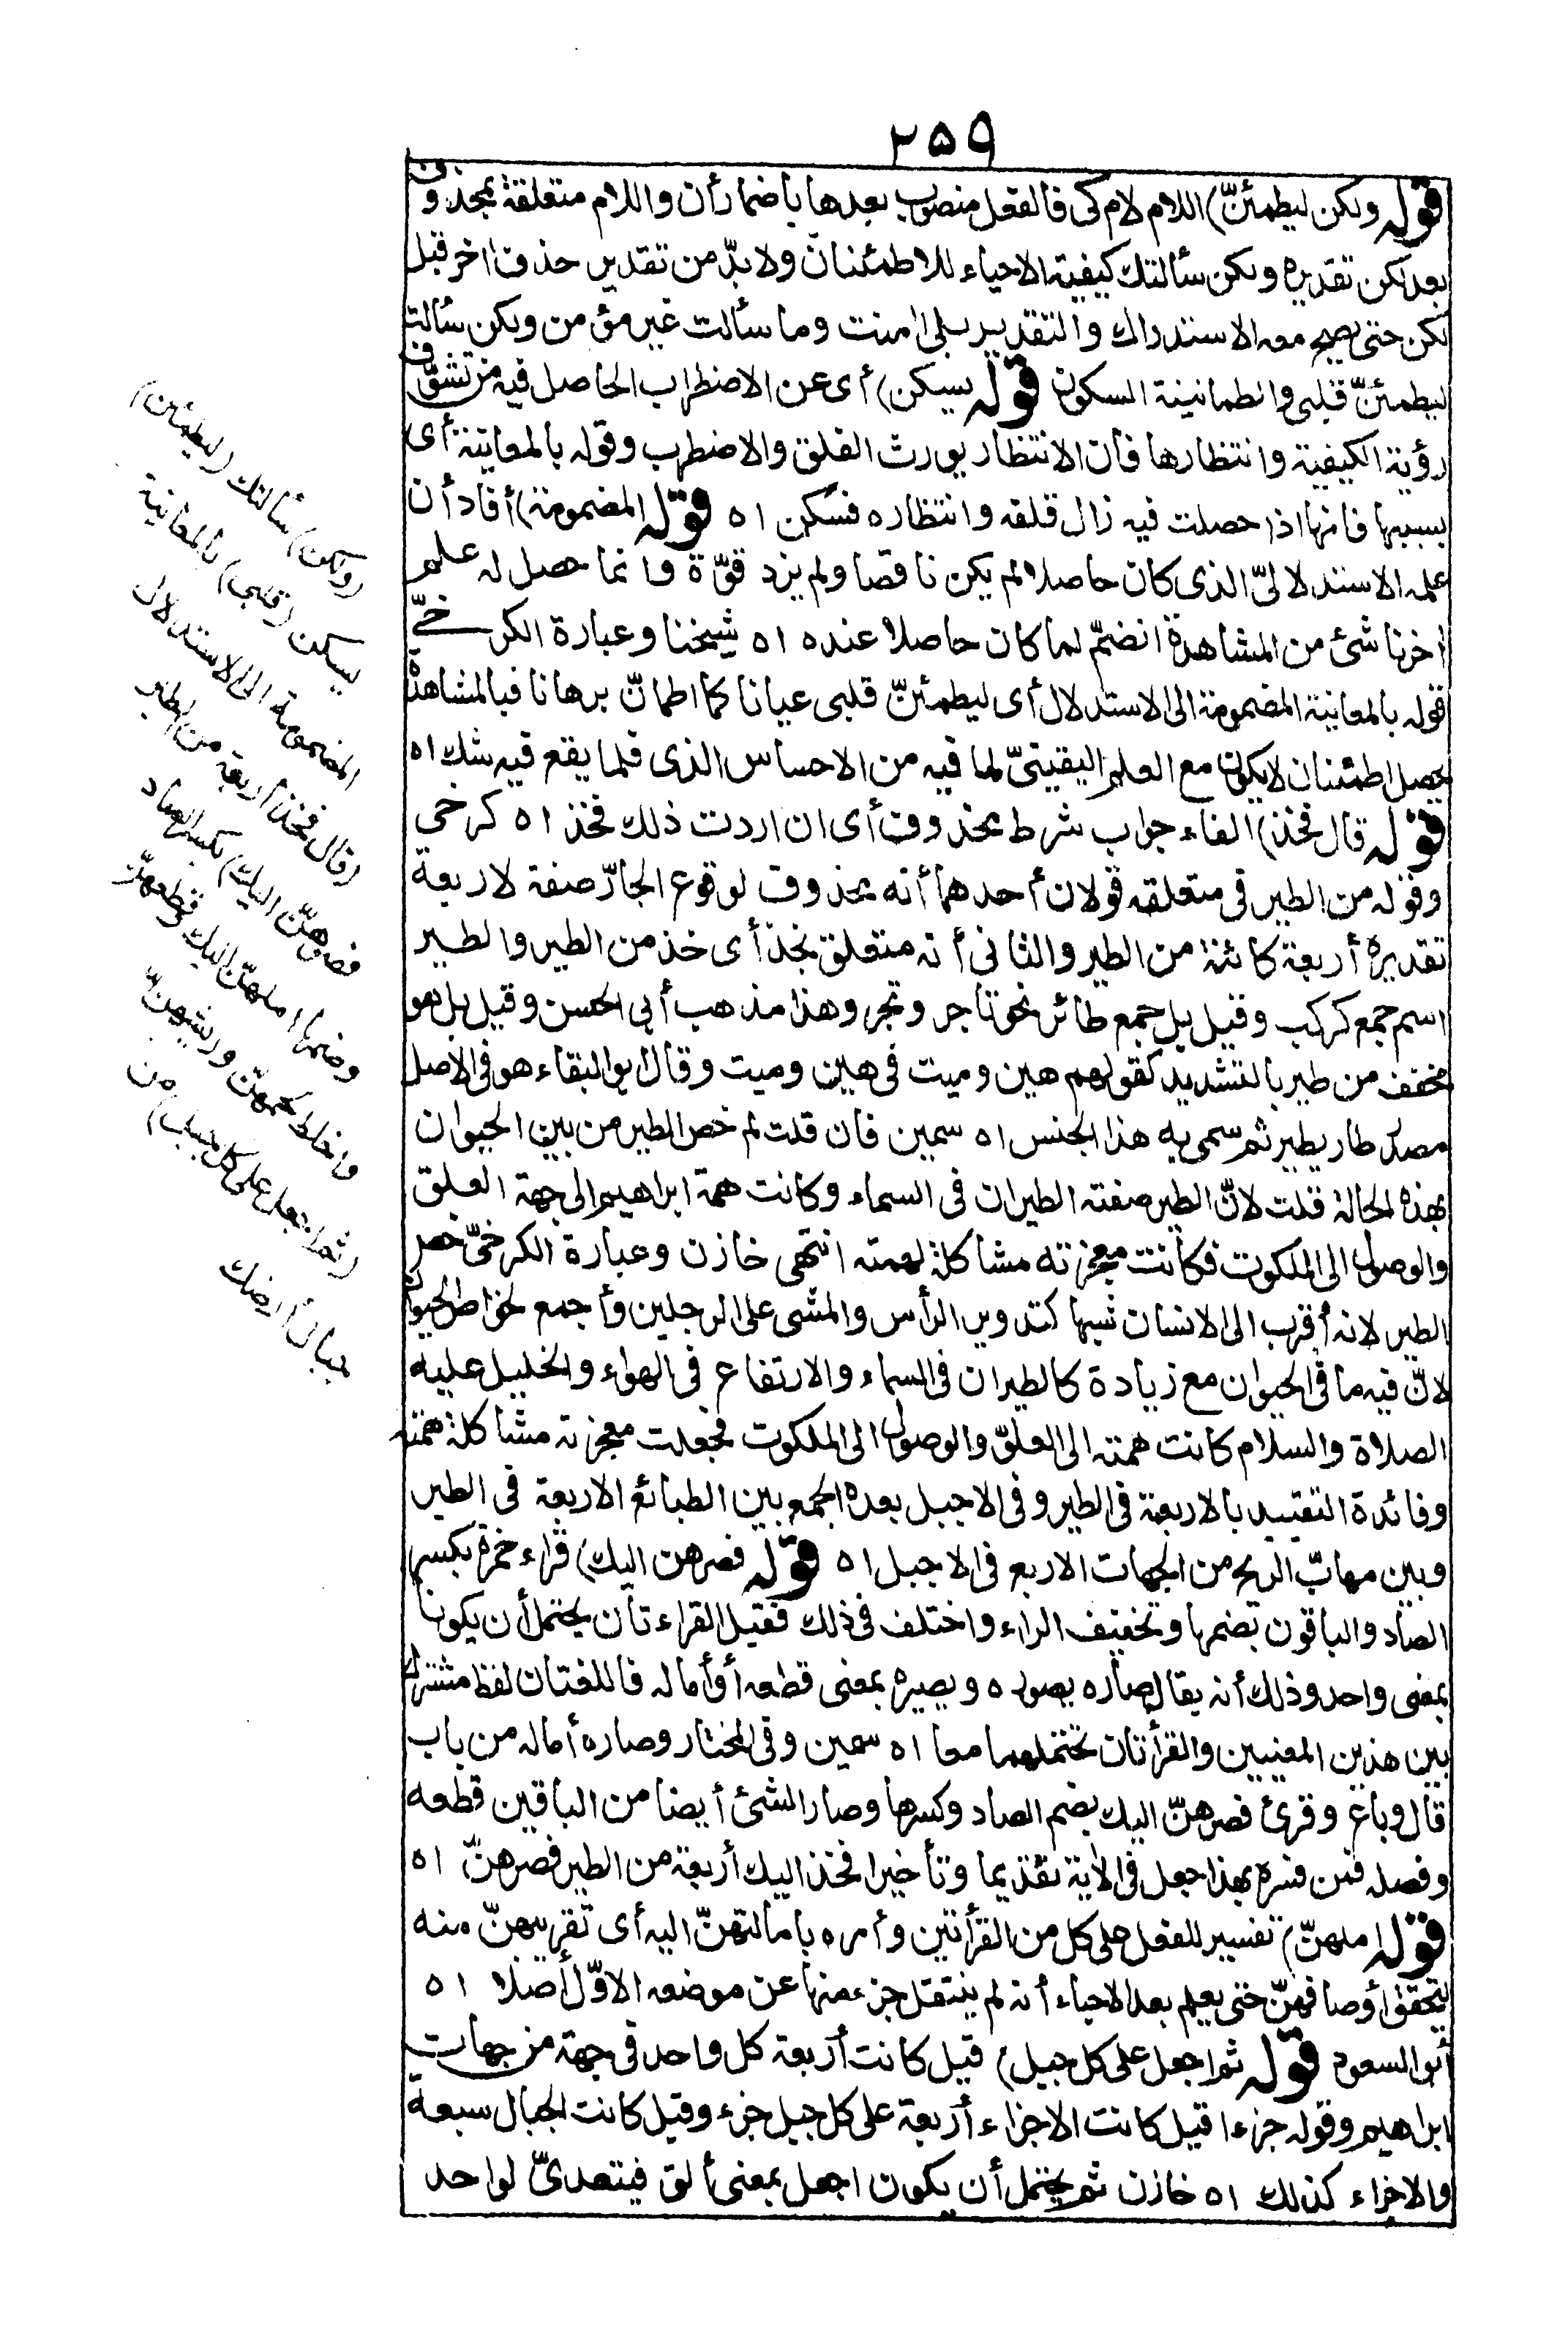 ٢٥٩
قوله ولكن ليطمئنّ) اللام لام كى فالفعل منصوب بعدها باضمار أن واللام متعلقة بمحذوف
بعد لكن تقديره ولكن سألتك كيفية الاحياء للاطمئنان ولا بدّ من تقدير حذف اخر قبل
لكن حتى يصح معه الاستدراك والتقدير بلى امنت وما سألت غير مؤمن ولكن سألت
ليطمئنّ قلبى والطمانينة السكون قوله يسكن) أى عن الاضطراب الحاصل فيه من تشوّف
رؤية الكيفية وانتظارها فان الانتظار يورث القلق والاضطرب وقوله بالمعاينة أى
بسببها فانها اذا حصلت فيه زال قلقه وانتظاره فسكن اه قوله المضمومة) أفاد أن
علمه الاستدلالىّ الذى كان حاصلا لم يكن ناقصا ولم يزد قوّة وانما حصل له علم
اخر ناشئ من المشاهدة انضمّ لما كان حاصلا عنده اه شيخنا وعبارة الكرخىّ
قوله بالمعاينة المضمومة الى الاستدلال أى ليطمئنّ قلبى عيانا كما اطمانّ برهانا فبالمشاهدة
يحصل اطمئنان لا يكون مع العلم اليقينىّ لما فيه من الاحساس الذى قلما يقع فيه شك اه
قوله قال فخذ) الفاء جواب شرط محذوف أى ان اردت ذلك فخذ اه كرخى
وقوله من الطير فى متعلقه قولان أحدهما أنه محذوف لوقوع الجارّ صفة لاربعة
تقديره أربعة كائنة من الطير والثانى أنه متعلق بخذ أى خذ من الطير والطير
اسم جمع كركب وقيل بل جمع طائر نحو تاجر وتجر وهذا مذهب أبى الحسن وقيل بل هو
مخفف من طير بالتشديد كقولهم هين وميت فى هين وميت وقال ابو البقاء هو فى الاصل
مصدر طار يطير ثم سمى به هذا الجنس اه سمين فان قلت لم خص الطير من بين الحيوان
بهذه الحالة قلت لانّ الطير صفته الطيران فى السماء وكانت همة ابراهيم الى جهة العلق
والوصول الى الملكوت فكانت معجزته مشاكلة لهمته انتهى خازن وعبارة الكرخىّ خص
الطير لانه أقرب الى الانسان شبها كتدوير الرأس والمشى على الرجلين وأجمع لخواص الحيوان
لانّ فيه ما فى الحيوان مع زيادة كالطيران فى السماء والارتفاع فى الهواء والخليل عليه
الصلاة والسلام كانت همته الى العلوّ والوصول الى الملكوت فجعلت معجزته مشاكلة همته
وفائدة التقييد بالاربعة فى الطير وفى الاجبل بعده الجمع بين الطبائع الاربعة فى الطير
وبين مهابّ الريح من الجهات الاربع فى الاجبل اه قوله فصرهن اليك) قراء حمزة بكسر
الصاد والباقون بضمها وتخفيف الراء واختلف فى ذلك فقيل القراءتان يحتمل أن يكونا
بمعنى واحد وذلك أنه يقال صاره يصوره ويصيره بمعنى قطعه أو أماله فاللغتان لفظ مشترك
بين هذين المعنيين والقرأتان تحتملهما معا اه سمين وفى المختار وصاره أماله من باب
قال وباع وقرئ فصرهنّ اليك بضم الصاد وكسرها وصار الشئ أيضا من الباقين قطعه
وفصله فمن فسره بهذا جعل فى الاية تقديما وتأخيرا فخذ اليك أربعة من الطير فصرهنّ اه
قوله املهنّ) تفسير للفعل على كل من القرأتين وأمره بامالتهنّ اليه أى تقريبهنّ منه
ليتحقق أوصافهنّ حتى يعلم بعد الاحياء أنه لم ينتقل جزء منها عن موضعه الاوّل أصلا اه
أبو السعود قوله ثم اجعل على كل جبل) قيل كانت أربعة كل واحد فى جهة من جهات
ابراهيم وقوله جزءا قيل كانت الاجزاء أربعة على كل جبل جزء وقيل كانت الجبال سبعة
والاجزاء كذلك اه خازن ثم يحتمل أن يكون اجعل بمعنى ألق فيتعدىّ لواحد
(ولكن) سألتك (ليطمئن)
يسكن (قلبى) بالمعاينة
المضمومة الى الاستدلال
(قال فخذ أربعة من الطير
فصرهنّ اليك) بكسر الصاد
وضمها املهنّ اليك وقطعهنّ
واخلط لحمهنّ وريشهنّ
(ثم اجعل على كل جبل) من
جبال أرضك